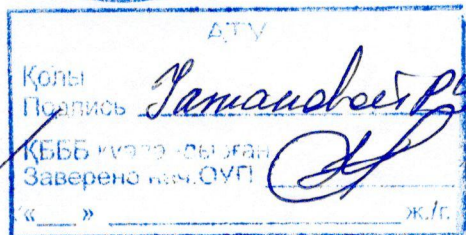 АТУ
Қолы
Подпись
ҚБББ куәландырған
Заверено нач.ОУП
«___» ж./г.